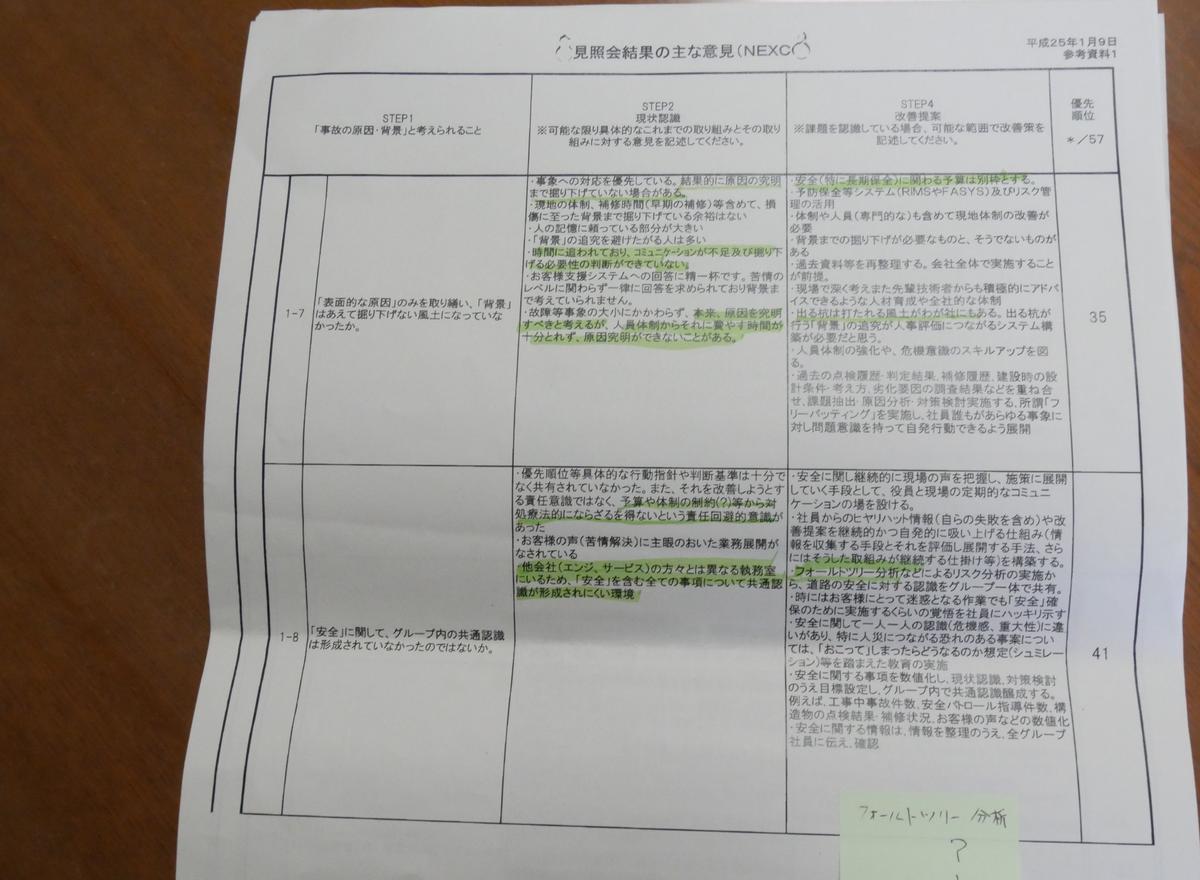 見照会結果の主な意見(NEXC
平成25年1月9日
参考資料1
STEP1
「事故の原因・背景」と考えられること
STEP2
現状認識
※可能な限り具体的なこれまでの取り組みとその取り
組みに対する意見を記述してください。
STEP4
改善提案
※課題を認識している場合、可能な範囲で改善策を
記述してください。
優先
順位
*/57
1-7
「表面的な原因」のみを取り繕い、「背景」
はあえて掘り下げない風土になっていな
かったか。
・事象への対応を優先している。結果的に原因の究明
まで掘り下げていない場合がある。
・現地の体制、補修時間(早期の補修)等含めて、損
傷に至った背景まで掘り下げている余裕はない
・人の記憶に頼っている部分が大きい
・「背景」の追究を避けたがる人は多い
・時間に追われており、コミュニケーションが不足及び掘り下
げる必要性の判断ができていない。
・お客様支援システムへの回答に精一杯です。苦情の
レベルに関わらず一律に回答を求められており背景ま
で考えていられません。
・故障等事象の大小にかかわらず、本来、原因を究明
すべきと考えるが、人員体制からそれに費やす時間が
十分とれず、原因究明ができないことがある。
・安全(特に長期保全)に関わる予算は別枠とする。
・予防保全等システム(RIMSやFASYS)及びリスク管
理の活用
・体制や人員(専門的な)も含めて現地体制の改善が
必要
・背景までの掘り下げが必要なものと、そうでないものが
ある
・過去資料等を再整理する。会社全体で実施すること
が前提。
・現場で深く考えまた先輩技術者からも積極的にアドバ
イスできるような人材育成や全社的な体制
・出る杭は打たれる風土がわが社にもある。出る杭が
行う「背景」の追究が人事評価につながるシステム構
築が必要だと思う。
・人員体制の強化や、危機意識のスキルアップを図
る。
・過去の点検履歴・判定結果、補修履歴、建設時の設
計条件・考え方、劣化要因の調査結果などを重ね合
せ、課題抽出・原因分析・対策検討実施する、所謂「フ
リーバッティング」を実施し、社員誰もがあらゆる事象に
対し問題意識を持って自発行動できるよう展開
35
1-8
「安全」に関して、グループ内の共通認識
は形成されていなかったのではないか。
・優先順位等具体的な行動指針や判断基準は十分で
なく共有されていなかった。また、それを改善しようとす
る責任意識ではなく、予算や体制の制約(?)等から対
処療法的にならざるを得ないという責任回避的意識が
あった
・お客様の声(苦情解決)に主眼のおいた業務展開が
なされている
・他会社(エンジ、サービス)の方々とは異なる執務室
にいるため、「安全」を含む全ての事項について共通認
識が形成されにくい環境
・安全に関し継続的に現場の声を把握し、施策に展開
していく手段として、役員と現場の定期的なコミュニ
ケーションの場を設ける。
・社員からのヒヤリハット情報(自らの失敗を含め)や改
善提案を継続的かつ自発的に吸い上げる仕組み(情
報を収集する手段とそれを評価し展開する手法、さら
にはそうした取組みが継続する仕掛け等)を構築する。
・フォールトツリー分析などによるリスク分析の実施か
ら、道路の安全に対する認識をグループ一体で共有。
・時にはお客様にとって迷惑となる作業でも「安全」確
保のために実施するくらいの覚悟を社員にハッキリ示す
・安全に関して一人一人の認識(危機感、重大性)に違
いがあり、特に人災につながる恐れのある事案につい
ては、「おこって」しまったらどうなるのか想定(シュミレー
ション)等を踏まえた教育の実施
・安全に関する事項を数値化し、現状認識、対策検討
のうえ目標設定し、グループ内で共通認識醸成する。
例えば、工事中事故件数、安全パトロール指導件数、構
造物の点検結果・補修状況、お客様の声などの数値化
・安全に関する情報は、情報を整理のうえ、全グループ
社員に伝え、確認
41
フォールトツリー 分析
?